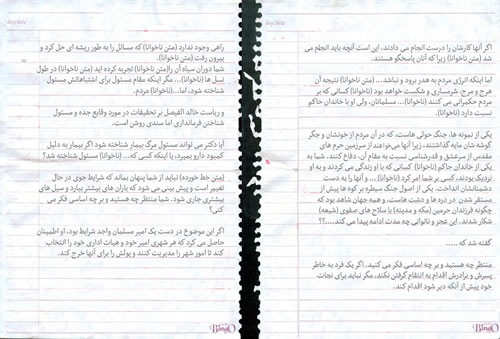 day/date
اگر آنها کارشان را درست انجام می دادند، این است آنچه باید انجام می
شد (متن ناخوانا) زیرا که آنان پاسخگو هستند.
اما اینکه انرژی مردم به هدر برود و نباشد... (متن ناخوانا) نتیجه آن
هرج و مرج، شرمساری و شکست خواهد بود (ناخوانا) کسانی که بر
مردم حکمرانی می کنند (ناخوانا)... مسلمانان، ولی او با خاندان حاکم
نسبت دارد (ناخوانا).
یکی از نمونه ها، جنگ حوثی هاست، که در آن مردم از خونشان و جگر
گوشه شان مایه گذاشتند، زیرا آنها می‌خواهند از سرزمین حرم های
مقدس از سر عشق و قدرشناسی نسبت به مقام آن، دفاع کنند. شما به
یکی از خاندان حاکم (ناخوانا) کسانی که با او زندگی می کردند و به او
نزدیک بودند، کسی بر شما امر کرد (ناخوانا)... و آنها را به دست
دشمنانشان انداخت. یکی از اصول جنگ سیطره بر کوه ها پیش از
مستقر شدن در دره ها و دشت هاست، و همه جهان شاهد بود که
چگونه فرزندان حرمین (مکه و مدینه) با سلاح های صفوی (شیعه)
شکار شدند. این عجز و ناتوانی چه مدت ادامه پیدا می کند....؟؟
گفته شد که .....
منتظر چه هستید و بر چه اساسی فکر می کنید. اگر یک فرد به خاطر
پسرش و برادرش اقدام به انتقام گرفتن نکند، مگر نباید برای نجات
خود پیش از آنکه دیر شود اقدام کند.
BingO
day/date
راهی وجود ندارد (متن ناخوانا) که مسائل را به طور ریشه ای حل کرد و
بیرون رفت (متن ناخوانا).
شما دوران سیاه آن را (متن ناخوانا) تجربه کرده اید (متن ناخوانا) در طول
نسل ها (ناخوانا)... مگر اینکه مقام مسئول برای اشتباهاتش مسئول
شناخته شود، اما...(ناخوانا) مردم.
و ریاست خالد الفیصل بر تحقیقات در مورد وقایع جده و مسئول
شناختن فرمانداری اما سندی روشن است.
آیا دکتر می تواند مسئول مرگ بیمار شناخته شود اگر بیمار به دلیل
کمبود دارو بمیرد، یا اینکه کسی که... (ناخوانا) مسئول شناخته شد؟
(متن خط خورده) نباید از شما پنهان بماند که شرایط جوی در حال
تغییر است و پیش بینی می شود که باران های بیشتر ببارد و سیل های
بیشتری جاری شود. شما منتظر چه هستید و بر چه اساسی فکر می
کنی؟
اگر این موضوع در دست یک امیر مسلمان واجد شرایط بود، او اطمینان
حاصل می کرد که هر شهری امیر خود و هیات اداری خود را انتخاب
کند تا امور شهر را مدیریت کنند و پولش را برای آنها خرج کند.
BingO